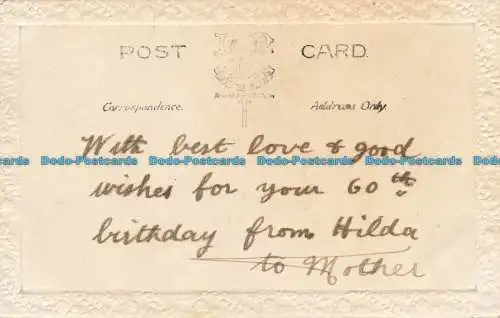 POST CARD
Correspondence. Address Only.
With best love & good
Dodo-Postcards Dodo-Postcards Dodo-Postcards Dodo-Postcards
wishes for your 60th
birthday from Hilda
to Mother